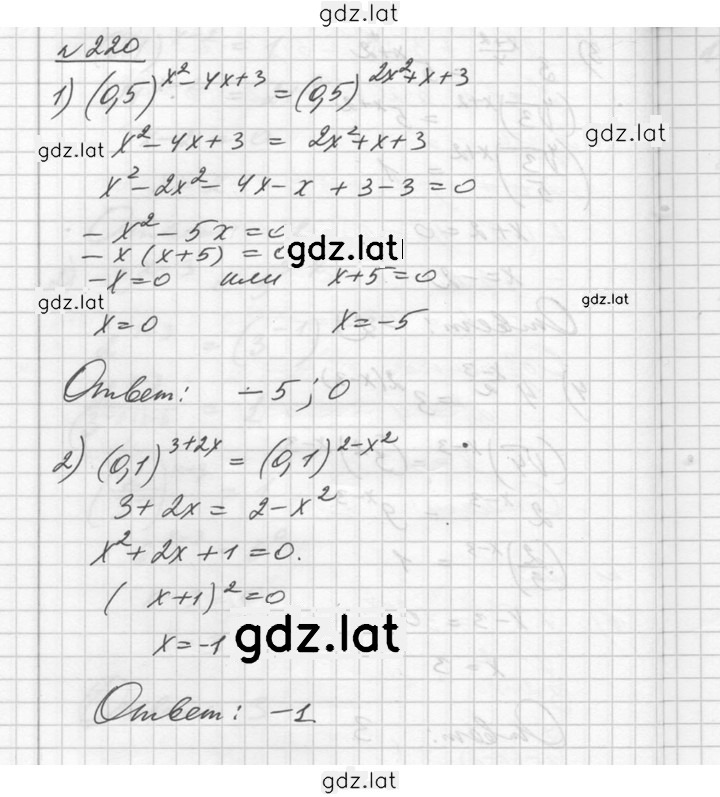 gdz.lat
№220
1) (0,5)^(x²-4x+3) = (0,5)^(2x²+x+3)
gdz.lat
gdz.lat x²-4x+3 = 2x²+x+3
x²-2x²-4x-x+3-3=0
-x²-5x=0
-x(x+5) = 0 gdz.lat
-x=0 или x+5=0
gdz.lat gdz.lat
x=0 x=-5
Ответ: -5; 0
2) (0,1)^(3+2x) = (0,1)^(2-x²)
3+2x = 2-x²
x²+2x+1=0.
(x+1)²=0
x=-1 gdz.lat
Ответ: -1
gdz.lat